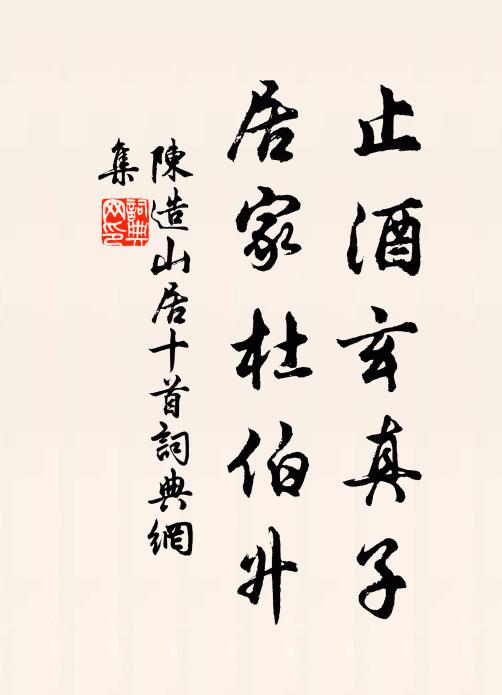 止酒玄真子
居家杜伯升
陳造山居十首詞典網
集
詞典
网印